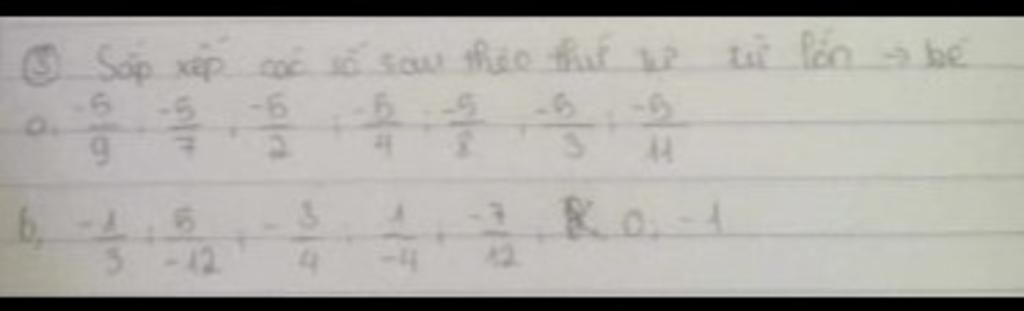 ③ Sắp xếp các số sau theo thứ tự từ lớn → bé
a, -5/9 ; -5/7 ; -5/2 ; -5/4 ; -5/8 ; -5/3 ; -5/11
b, -1/3 ; 5/-12 ; -3/4 ; 1/-4 ; -7/12 ; 0 ; -1